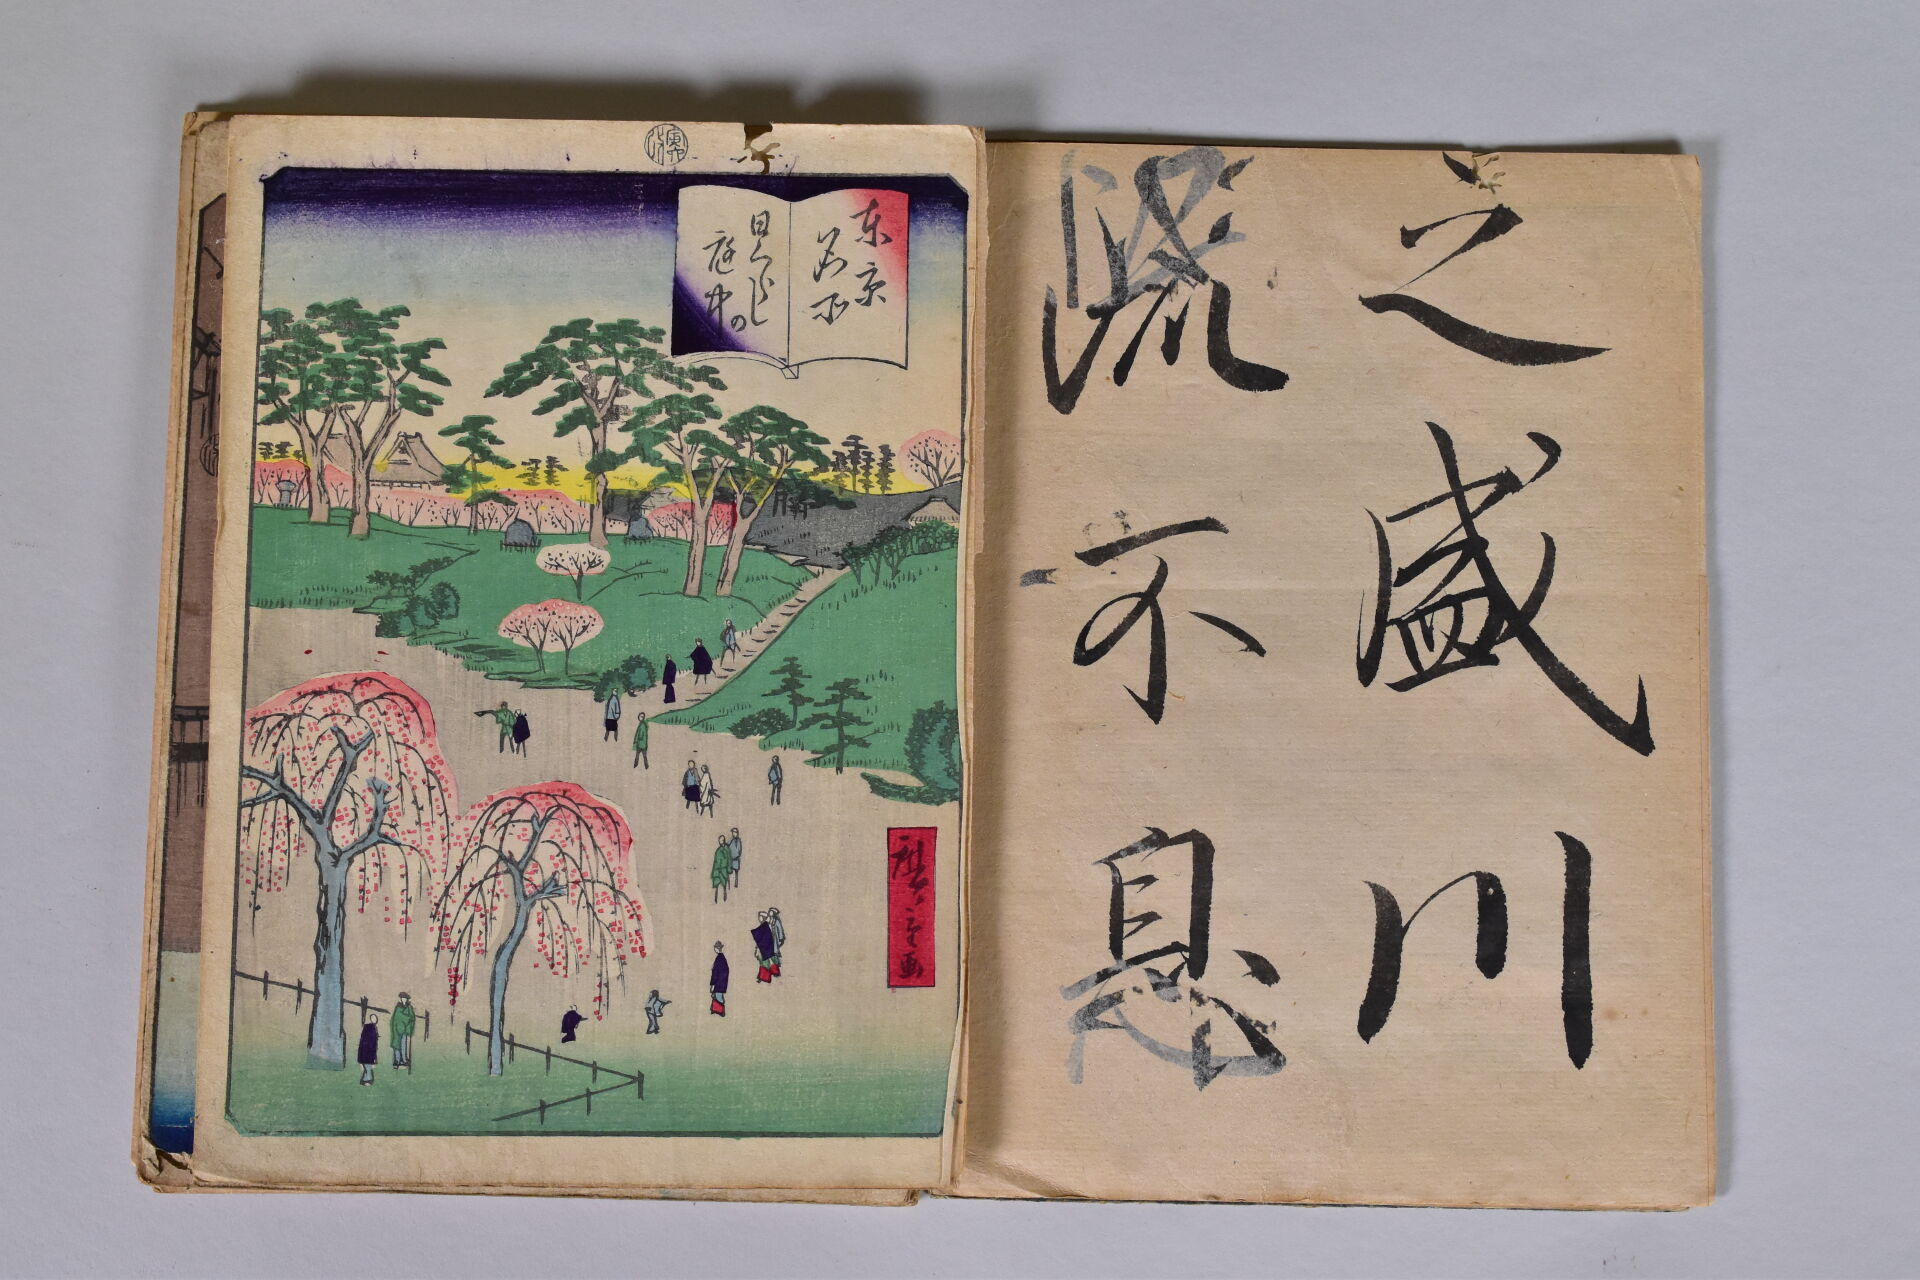 之盛川
流不息
東京
名所
日くらしの
庭中
廣重画